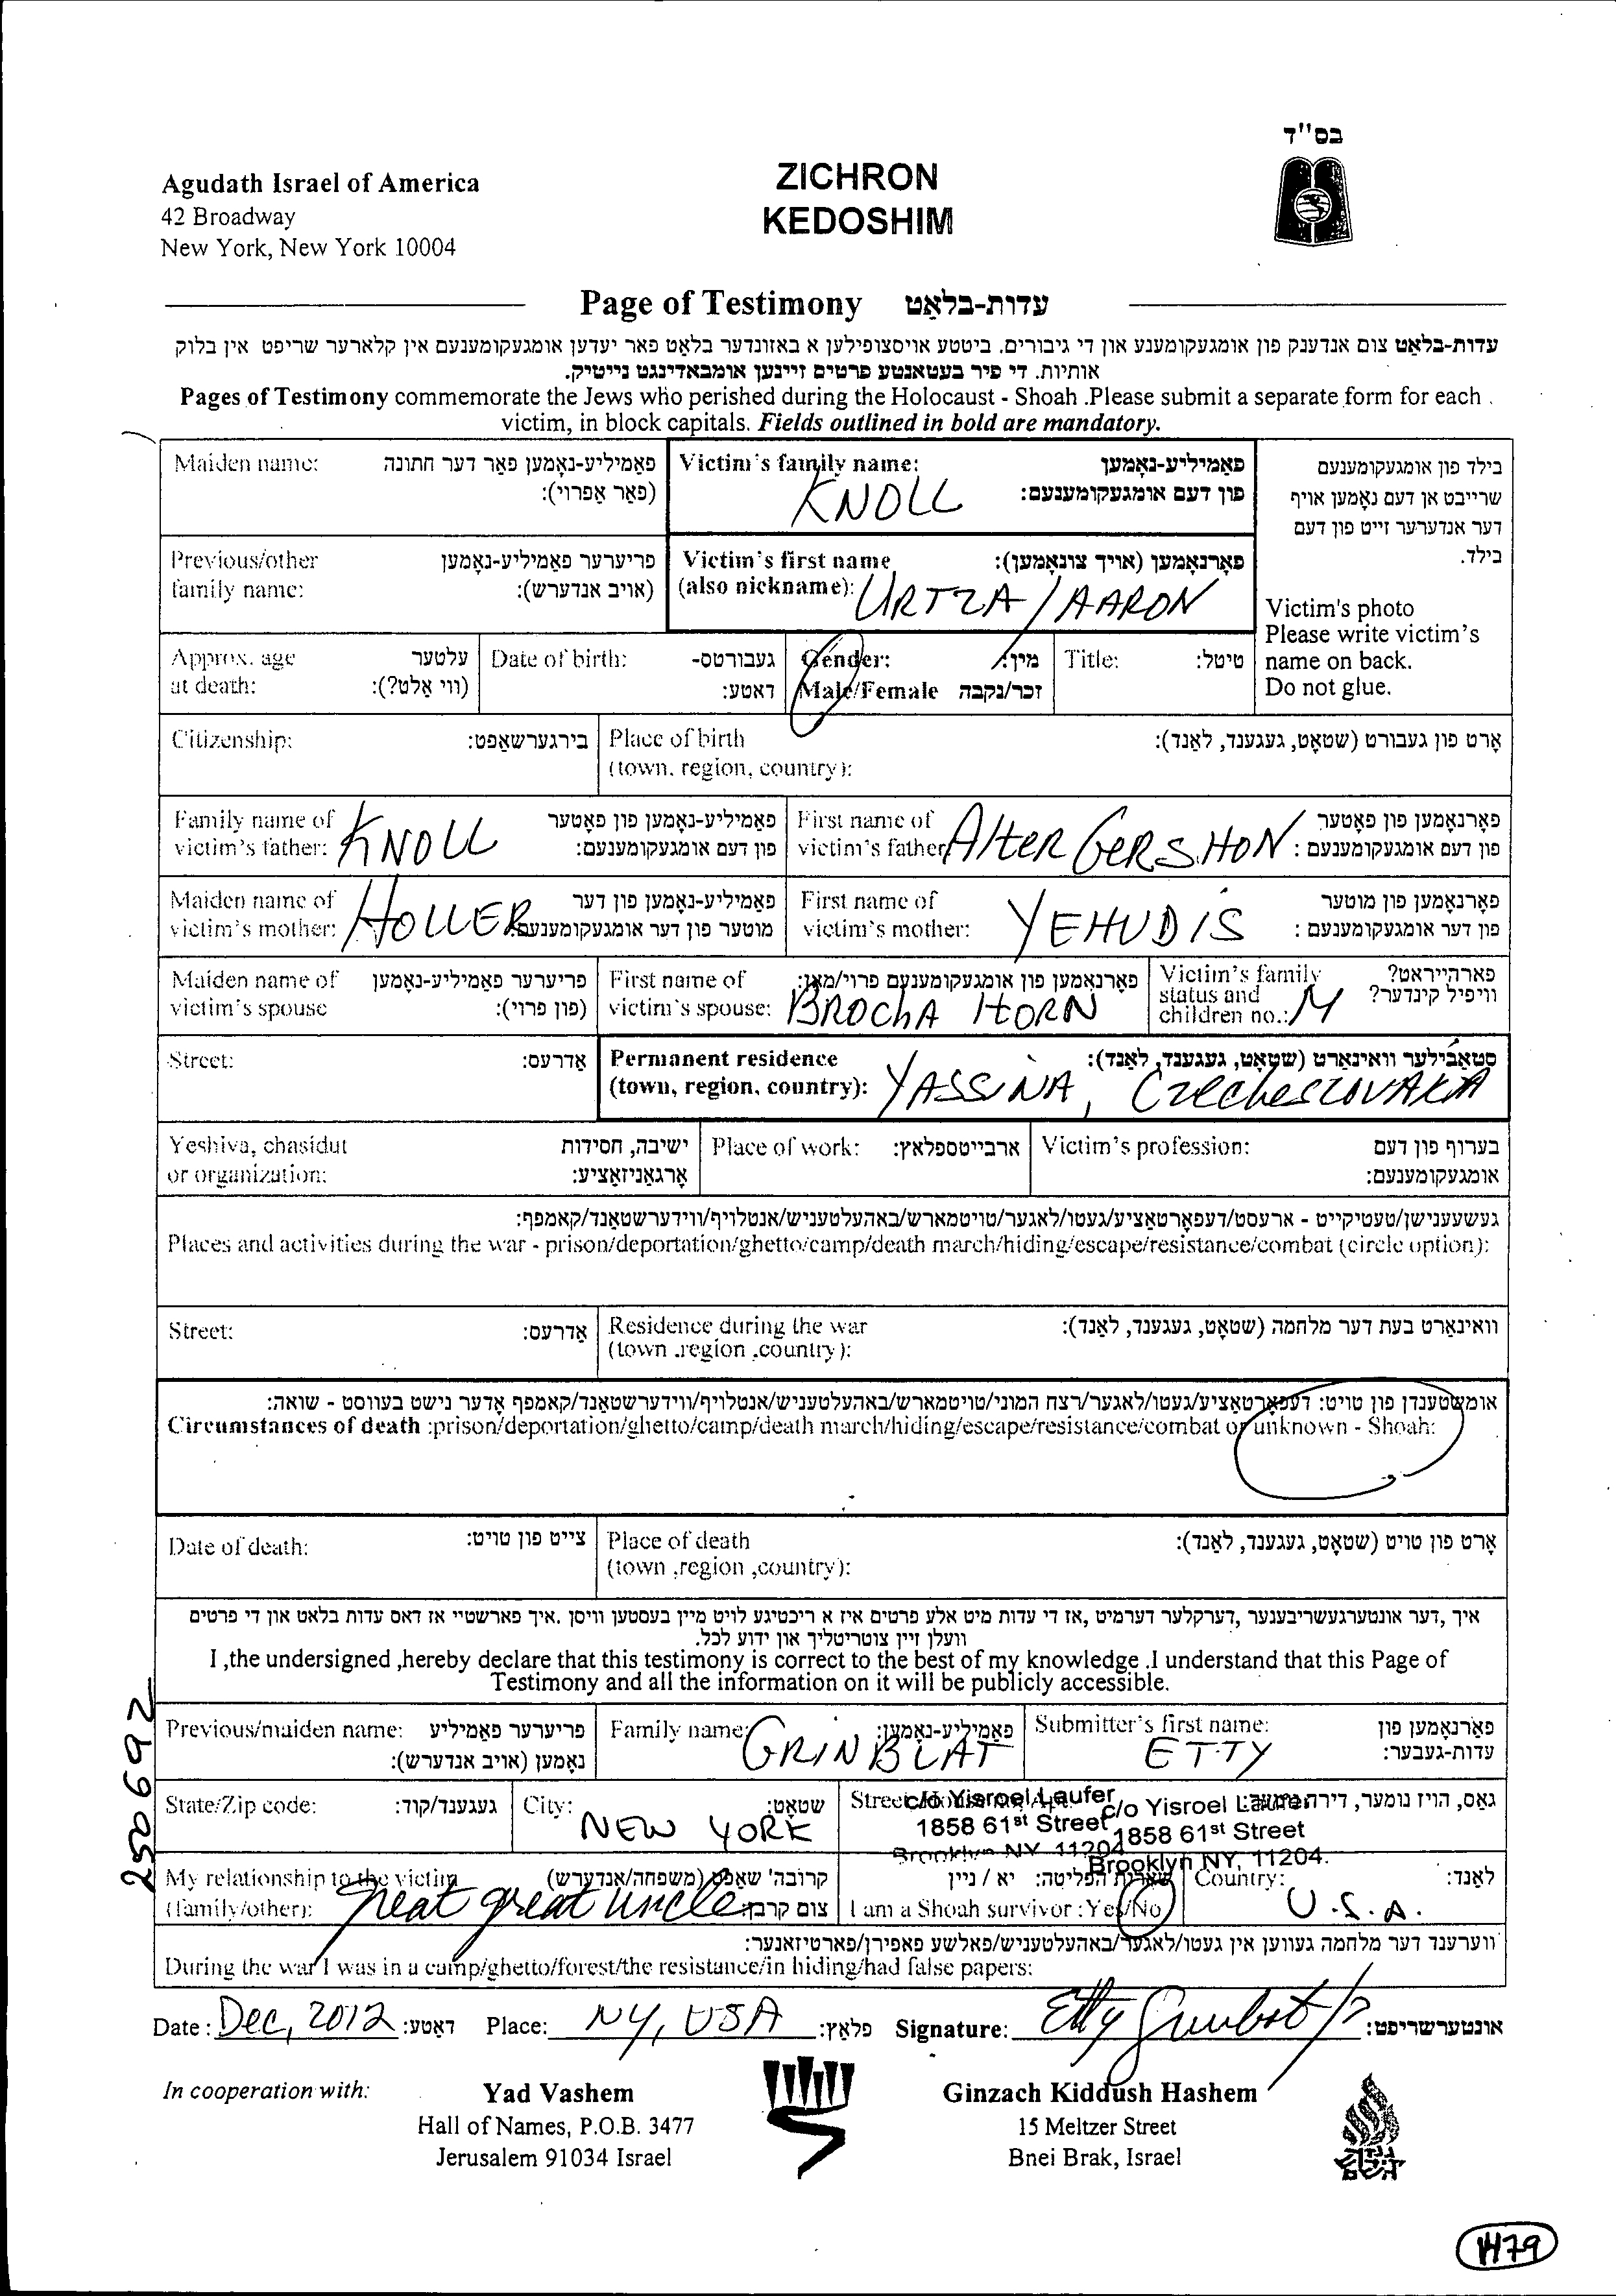 בס"ד
Agudath Israel of America
42 Broadway
New York, New York 10004
ZICHRON
KEDOSHIM
Page of Testimony עדות-בלאַט
עדות-בלאַט צום אנדענק פון אומגעקומענע און די גיבורים. ביטטע אויסצופילען א באזונדער בלאט פאר יעדען אומגעקומענעם אין קלארער שריפט אין בלוק
אותיות. די פיר בעטאנטע פרטים זיינען אומבאדינגט נייטיק.
Pages of Testimony commemorate the Jews who perished during the Holocaust - Shoah .Please submit a separate form for each
victim, in block capitals. Fields outlined in bold are mandatory.
Maiden name: פאַמיליע-נאָמען פאַר דער חתונה
(פאַר אַפרוי):
Victim's family name: פאַמיליע-נאָמען
פון דעם אומגעקומענעם:
KNOLL
בילד פון אומגעקומענעם
שרייבט אן דעם נאָמען אויף
דער אנדערער זייט פון דעם
בילד.
Victim's photo
Please write victim's
name on back.
Do not glue.
Previous/other פריערער פאַמיליע-נאָמען
family name: (אויב אנדערש):
Victim's first name פאָרנאָמען (אויך צונאָמען):
(also nickname): URTZA / AARON
Approx. age עלטער
at death: (ווי אַלט?):
Date of birth: געבורטס-
דאטע:
Gender: מין:
Male/Female זכר/נקבה
Title: טיטל:
Citizenship: בירגערשאַפט:
Place of birth אָרט פון געבורט (שטאָט, געגענד, לאַנד):
(town, region, country):
Family name of פאַמיליע-נאָמען פון פאָטער
victim's father: פון דעם אומגעקומענעם:
KNOLL
First name of פאָרנאָמען פון פאָטער
victim's father פון דעם אומגעקומענעם :
AlTER GERSHON
Maiden name of פאַמיליע-נאָמען פון דער
victim's mother: מוטער פון דער אומגעקומענעם
HOLLER
First name of פאָרנאָמען פון מוטער
victim's mother: פון דער אומגעקומענעם :
YEHUDIS
Maiden name of פריערער פאַמיליע-נאָמען
victim's spouse (פון פרוי):
First name of פאָרנאָמען פון אומגעקומענעם פרוי/מאַן:
victim's spouse: BROCHA HORN
Victim's family פארהייראט?
status and וויפיל קינדער?
children no.: M
Street: אַדרעס:
Permanent residence סטאַבילער וואוינאָרט (שטאָט, געגענד, לאַנד):
(town, region, country): YASSINA, CzechesLOVAKIA
Yeshiva, chasidut ישיבה, חסידות
or organization: אָרגאַניזאַציע:
Place of work: ארבייטספלאַץ:
Victim's profession: בערוף פון דעם
אומגעקומענעם:
געשעענישן/טעטיקייט - ארעסט/דעפּאָרטאַציע/געטו/לאַגער/טויטמארש/באהעלטעניש/אנטלויף/ווידערשטאַנד/קאמפף:
Places and activities during the war - prison/deportation/ghetto/camp/death march/hiding/escape/resistance/combat (circle option):
Street: אַדרעס:
Residence during the war וואוינאָרט בעת דער מלחמה (שטאָט, געגענד, לאַנד):
(town .region .country ):
אומשטענדן פון טויט: דעפּאָרטאַציע/געטו/לאַגער/רצח המוני/טויטמארש/באהעלטעניש/אנטלויף/ווידערשטאַנד/קאמפף אָדער נישט בעווסט - שואה:
Circumstances of death :prison/deportation/ghetto/camp/death march/hiding/escape/resistance/combat or unknown - Shoah:
Date of death: צייט פון טויט:
Place of death אָרט פון טויט (שטאָט, געגענד, לאַנד):
(town ,region ,country):
איך ,דער אונטערגעשריבענער ,דערקלער דערמיט ,אז די עדות מיט אלע פרטים איז א ריכטיגע לויט מיין בעסטען וויסן .איך פארשטיי אז דאס עדות בלאט און די פרטים
וועלן זיין צוטריטליך און ידוע לכל.
I ,the undersigned ,hereby declare that this testimony is correct to the best of my knowledge .I understand that this Page of
Testimony and all the information on it will be publicly accessible.
250692
Previous/maiden name: פריערער פאַמיליע
נאָמען (אויב אנדערש):
Family name: פאַמיליע-נאָמען:
GRINBLAT
Submitter's first name: פאָרנאָמען פון
עדות-געבער:
ETTY
State/Zip code: געגענד/קוד:
City: שטאָט:
NEW YORK
Street גאַס, הויז נומער, דירה
c/o Yisroel Laufer
1858 61st Street
Brooklyn NY 11204
c/o Yisroel Laufer
1858 61st Street
Brooklyn NY, 11204.
My relationship to the victim קרובה' שאַפט (משפחה/אנדערש)
(family/other): צום קרבן
great great uncle
שארית הפליטה: יא / ניין
I am a Shoah survivor : Yes/No
Country: לאַנד:
U.S.A.
ווערענד דער מלחמה געווען אין געטו/לאַגער/באהעלטעניש/פאלשע פאפירן/פארטיזאנער:
During the war I was in a camp/ghetto/forest/the resistance/in hiding/had false papers:
Date : Dec, 2012 דאטע: Place: NY, USA פלאַץ: Signature: Etty Grinblat אונטערשריפט:
In cooperation with:
Yad Vashem
Hall of Names, P.O.B. 3477
Jerusalem 91034 Israel
Ginzach Kiddush Hashem
15 Meltzer Street
Bnei Brak, Israel
1479